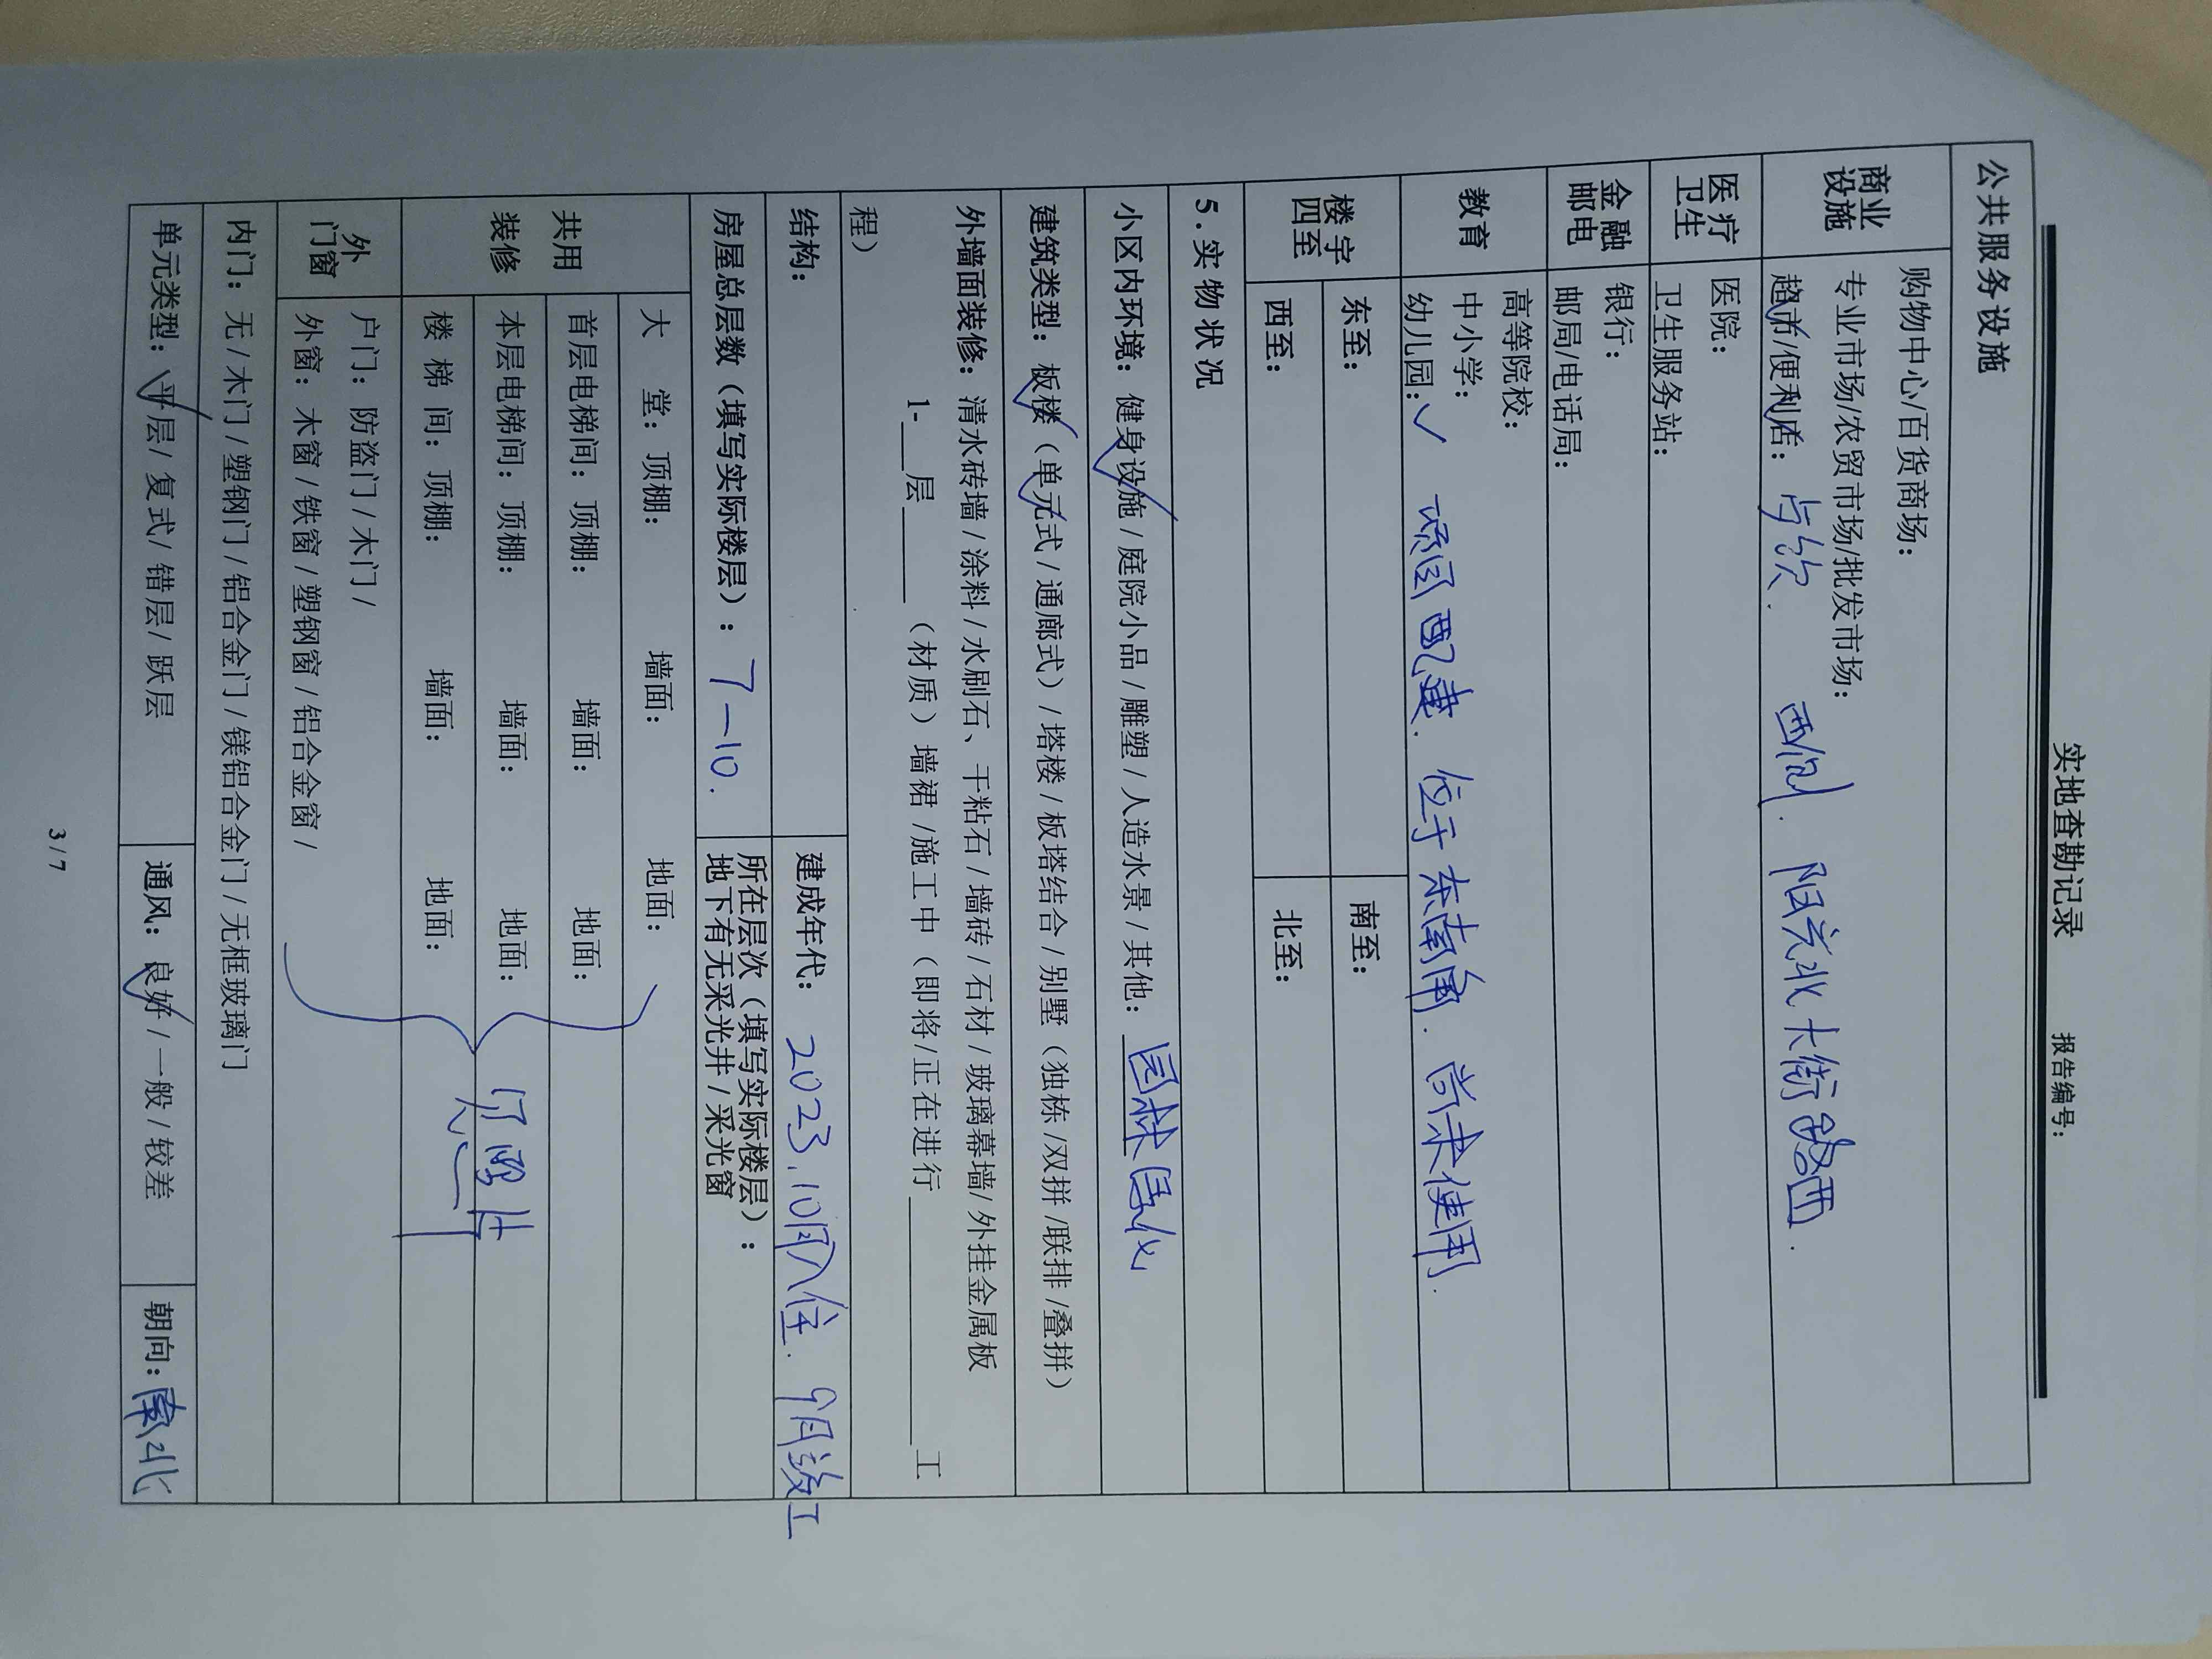 实地查勘记录
报告编号：
公共服务设施
商业设施
购物中心/百货商场：
专业市场/农贸市场/批发市场：
超市/便利店： 西侧. 阳光北大街路西.
医疗卫生
医院：
卫生服务站：
金融邮电
银行：
邮局/电话局：
教育
高等院校：
中小学：
幼儿园：✓ 项目配建. 位于东南角. 尚未使用.
楼宇四至
东至： 南至：
西至： 北至：
5.实物状况
小区内环境：健身设施/庭院小品/雕塑/人造水景/其他：园林绿化
建筑类型：板楼（单元式/通廊式）/塔楼/板塔结合/别墅（独栋/双拼/联排/叠拼）
外墙面装修：清水砖墙/涂料/水刷石、干粘石/墙砖/石材/玻璃幕墙/外挂金属板
1-__层____（材质）墙裙/施工中（即将/正在进行________工
程）
结构： 建成年代： 2023.10月入住. 9月竣工
房屋总层数（填写实际楼层）：7—10. 所在层次（填写实际楼层）：
地下有无采光井/采光窗
共用装修
大 堂：顶棚： 墙面： 地面：
首层电梯间：顶棚： 墙面： 地面：
本层电梯间：顶棚： 墙面： 地面：
楼 梯 间：顶棚： 墙面： 地面：
外门窗
户门：防盗门/木门/
外窗：木窗/铁窗/塑钢窗/铝合金窗/
内门：无/木门/塑钢门/铝合金门/镁铝合金门/无框玻璃门
单元类型：平层/复式/错层/跃层 通风：良好/一般/较差 朝向：南北
3/7